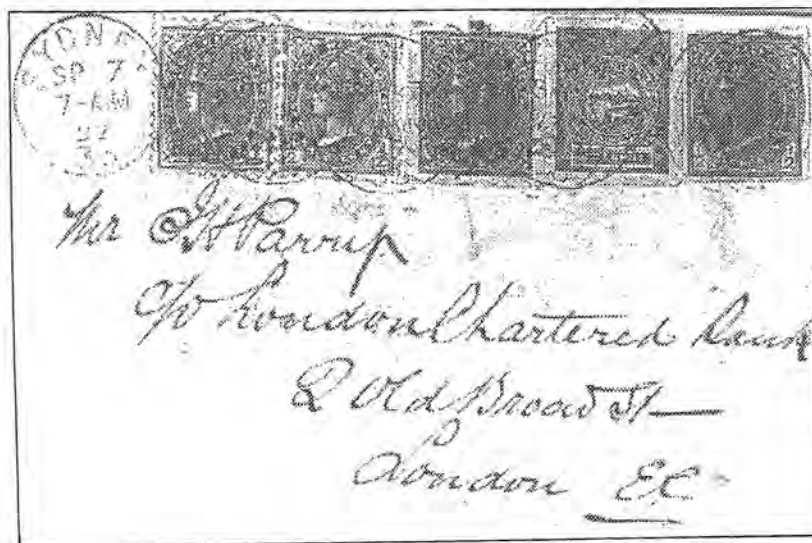 SYDNEY
SP 7
7-AM
Mr
c/o London Chartered Bank
2 Old Broad St
London EC